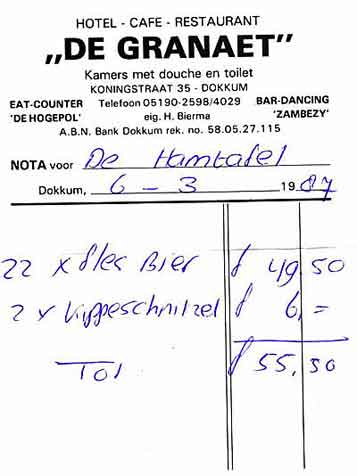 HOTEL - CAFE - RESTAURANT
„DE GRANAET”
Kamers met douche en toilet
KONINGSTRAAT 35 - DOKKUM
EAT-COUNTER Telefoon 05190-2598/4029 BAR-DANCING
'DE HOGEPOL' eig. H. Bierma 'ZAMBEZY'
A.B.N. Bank Dokkum rek. no. 58.05.27.115
NOTA voor De Hamtafel
Dokkum, 6 - 3 1987
22 x fles Bier f 49,50
2 x Kippeschnitzel f 6,=
Tot f 55,50